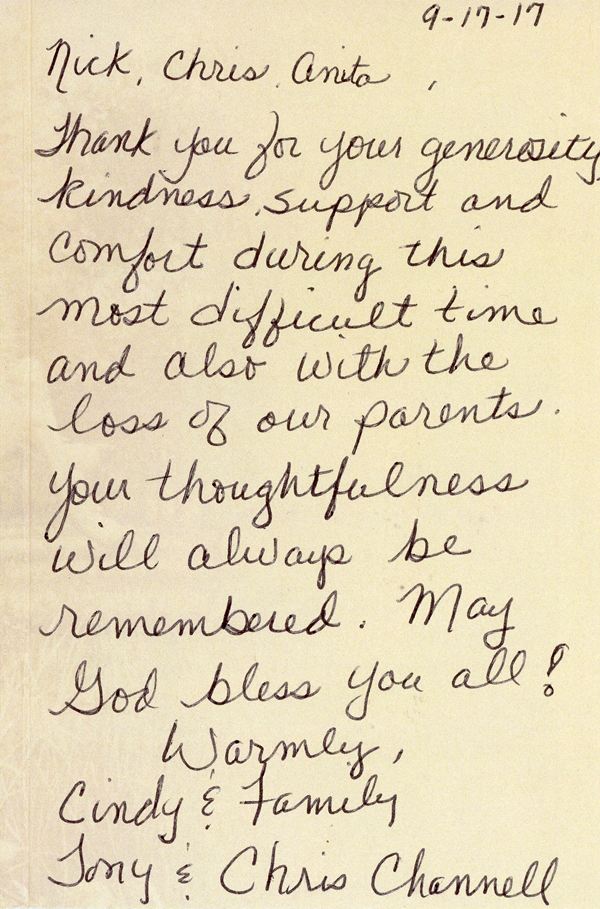 9-17-17
Nick, Chris, Anita,
Thank you for your generosity,
kindness, support and
comfort during this
most difficult time
and also with the
loss of our parents.
Your thoughtfulness
will always be
remembered. May
God bless you all!
Warmly,
Cindy & Family
Tony & Chris Channell